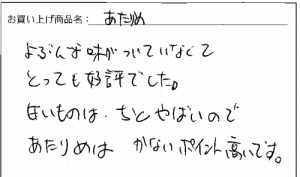 お買い上げ商品名： あたりめ
よぶんな味がついていなくて
とっても好評でした。
甘いものは、ちとやばいので
あたりめは かなりポイント高いです。